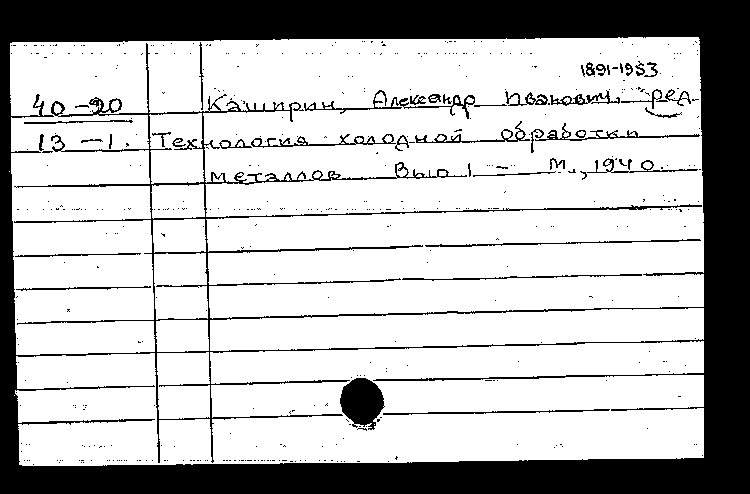 1891-1953
40-20 Каширин, Александр Иванович, ред.
13-1. Технология холодной обработки
металлов Вып 1 - М., 1940.